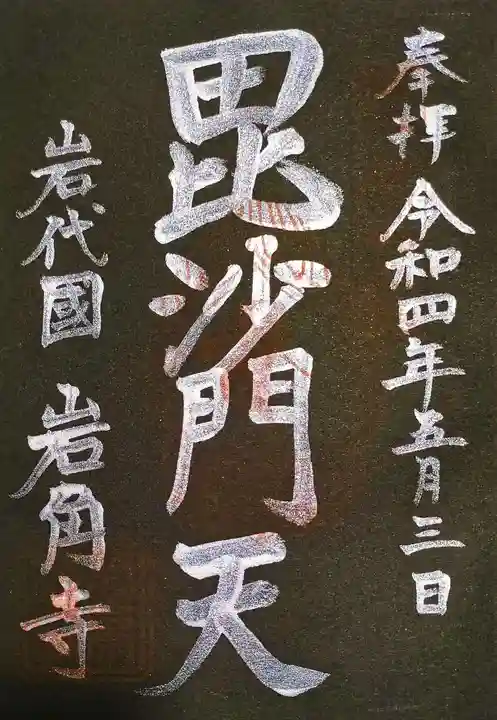 奉拝 令和四年五月三日
毘沙門天
岩代國 岩角寺